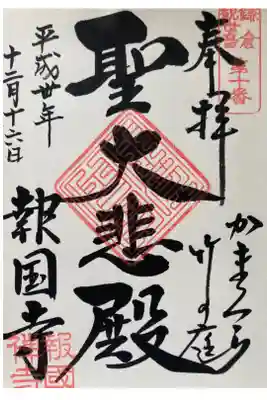 鎌倉
観音
第十番
奉拝
かまくら
竹の庭
聖大悲殿
平成卅年
十二月十六日
報国寺
報國
禅寺